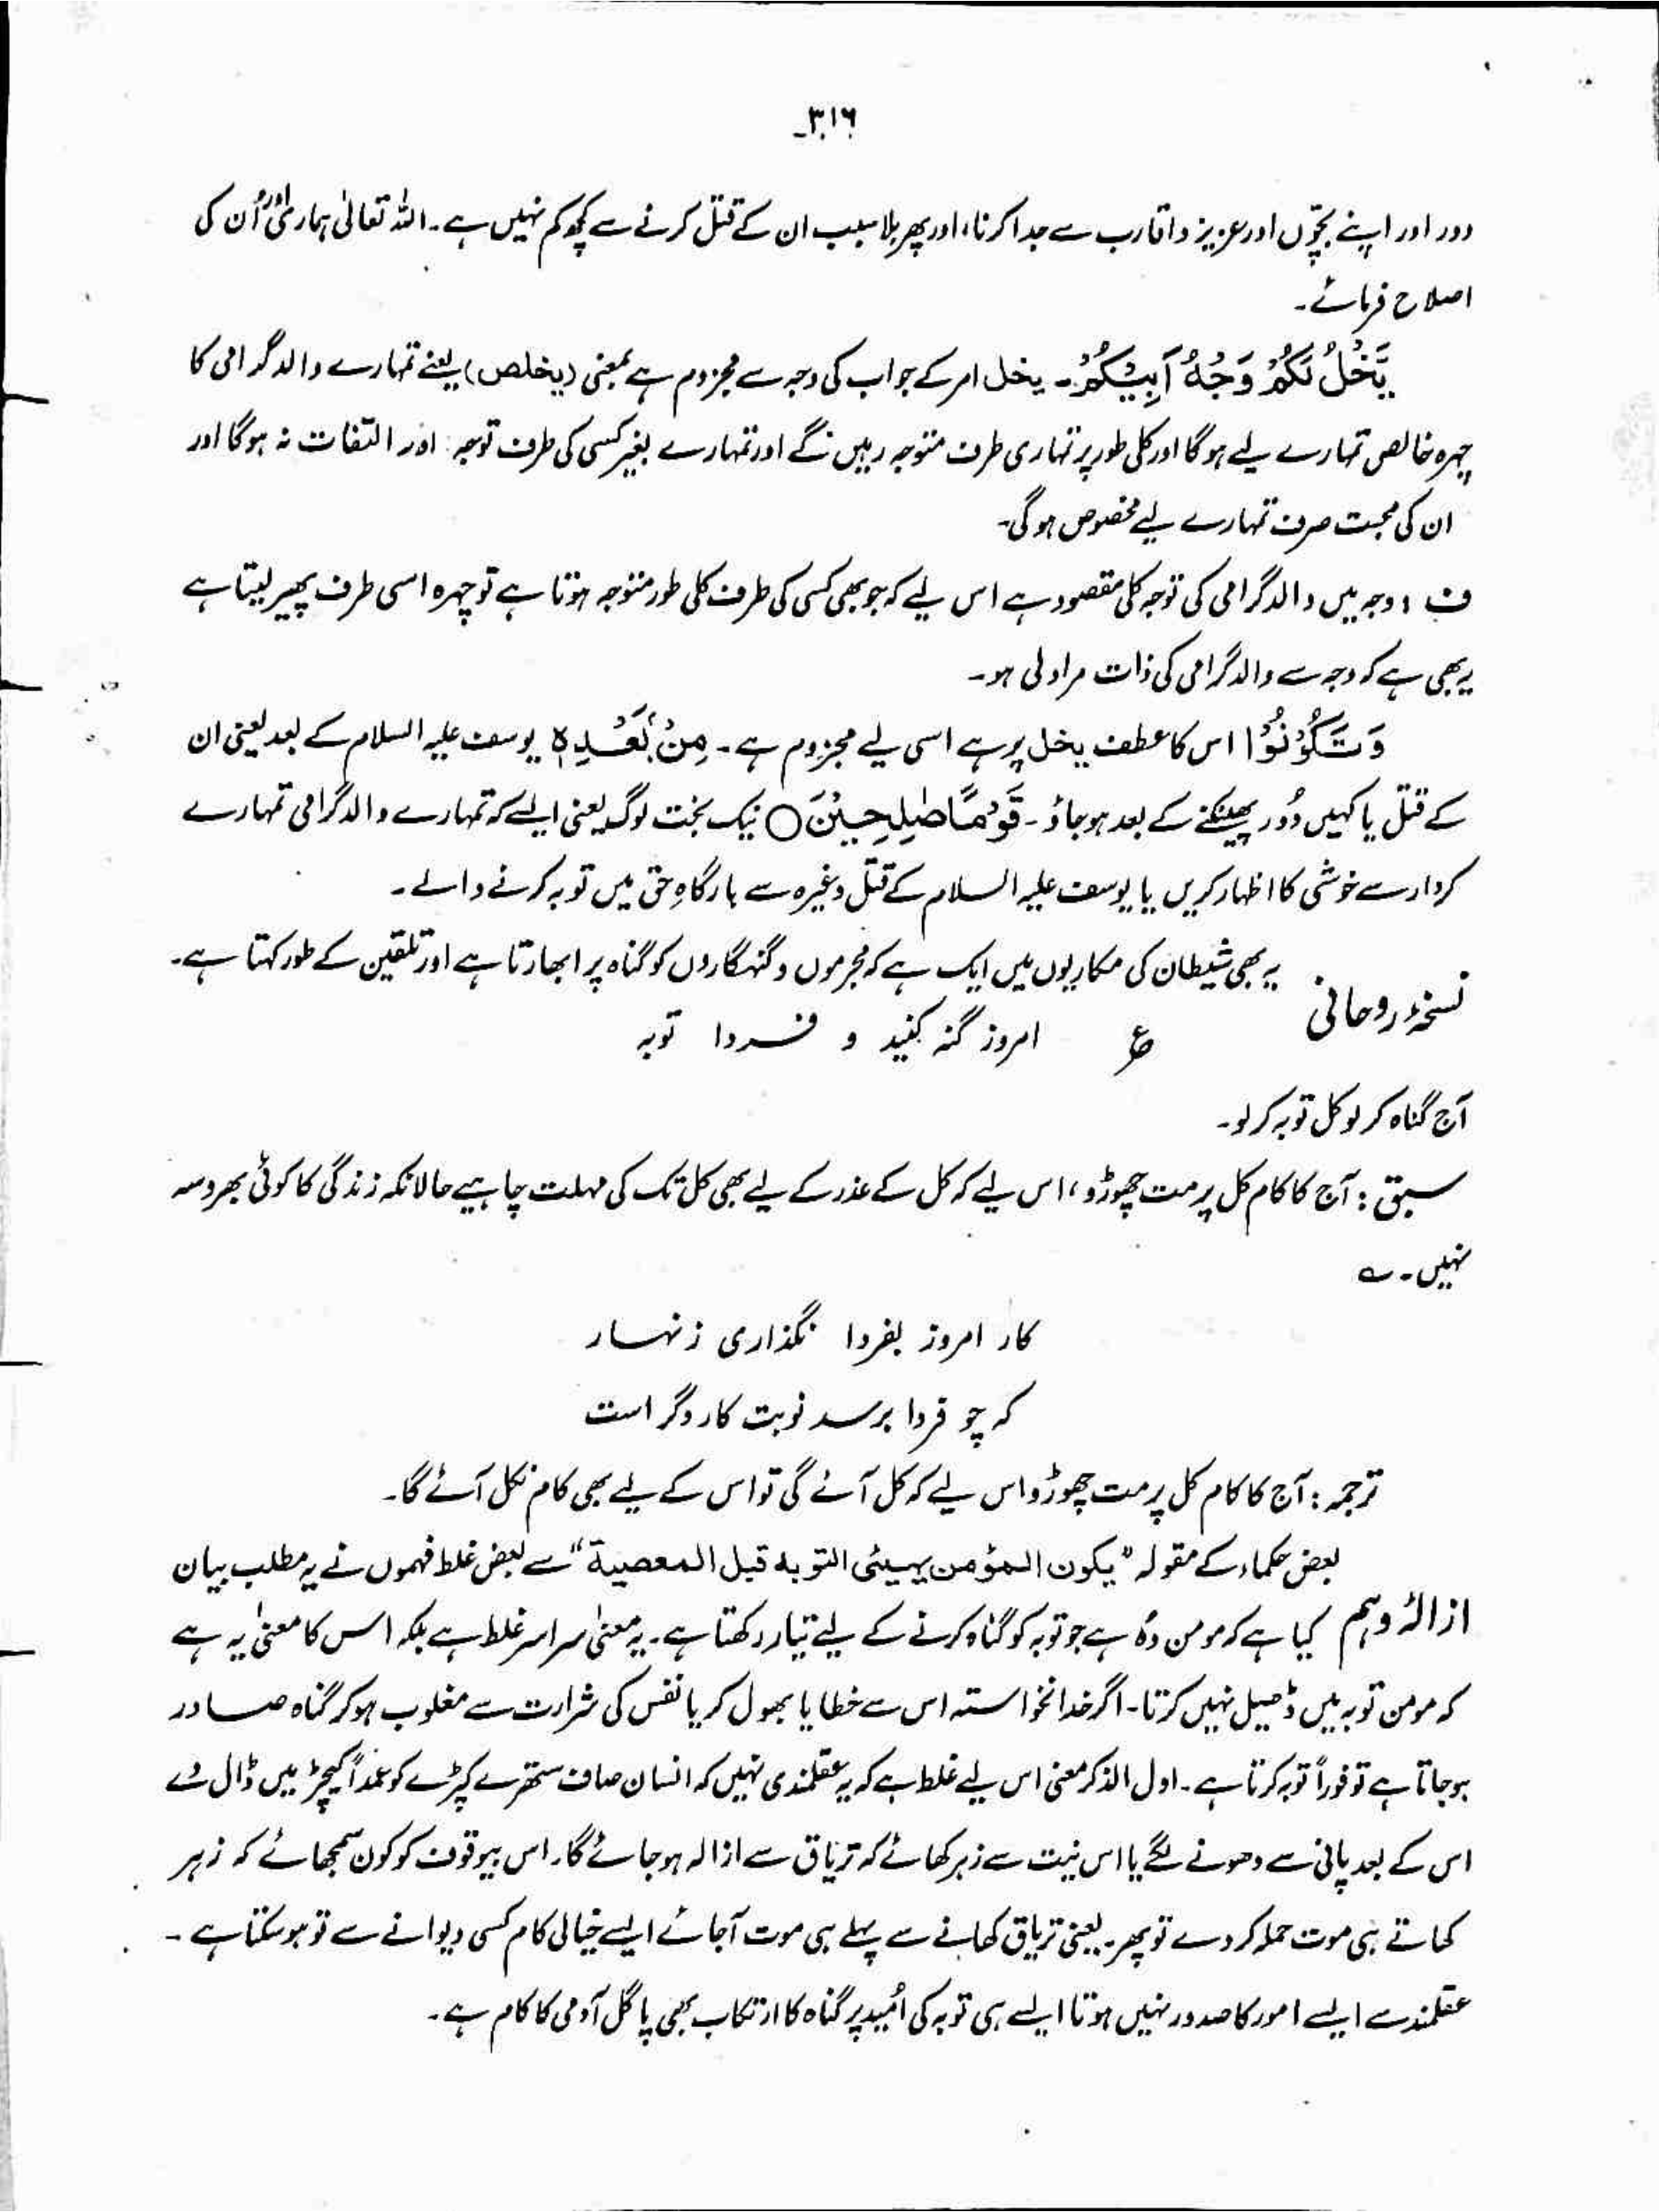 ۳۱۶
دور اور اپنے بچّوں اور عزیز واقارب سے جدا کرنا، اور پھر بلا سبب ان کے قتل کرنے سے کچھ کم نہیں ہے۔ اللہ تعالیٰ ہماری اور اُن کی
اصلاح فرمائے۔
یَّخْلُ لَكُمْ وَجْهُ اَبِیْكُمْ۔ یخل امر کے جواب کی وجہ سے مجزوم ہے بمعنی (یخلص) یعنے تمہارے والد گرامی کا
چہرہ خالص تمہارے لیے ہوگا اور کلی طور پر تمہاری طرف متوجہ رہیں گے اور تمہارے بغیر کسی کی طرف توجہ اور التفات نہ ہوگا اور
ان کی محبت صرف تمہارے لیے مخصوص ہوگی۔
ف : وجہ میں والد گرامی کی توجہ کلی مقصود ہے اس لیے کہ جو بھی کسی کی طرف کلی طور متوجہ ہوتا ہے تو چہرہ اسی طرف پھیر لیتا ہے
یہ بھی ہے کہ وجہ سے والد گرامی کی ذات مراد لی ہو۔
وَ تَكُوْنُوْا اس کا عطف یخل پر ہے اسی لیے مجزوم ہے۔ مِنْۢ بَعْدِهٖ یوسف علیہ السلام کے بعد یعنی ان
کے قتل یا کہیں دُور پھینکنے کے بعد ہو جاؤ۔ قَوْمًا صٰلِحِیْنَ ○ نیک بخت لوگ یعنی ایسے کہ تمہارے والد گرامی تمہارے
کردار سے خوشی کا اظہار کریں یا یوسف علیہ السلام کے قتل وغیرہ سے بارگاہِ حق میں توبہ کرنے والے۔
نسخۂ روحانی یہ بھی شیطان کی مکاریوں میں ایک ہے کہ مجرموں و گنہگاروں کو گناہ پر ابھارتا ہے اور تلقین کے طور کہتا ہے۔
ع امروز گنہ کنید و فردا توبہ
آج گناہ کر لو کل توبہ کر لو۔
سبق : آج کا کام کل پر مت چھوڑو، اس لیے کہ کل کے عذر کے لیے بھی کل تک کی مہلت چاہیے حالانکہ زندگی کا کوئی بھروسہ
نہیں۔ ے
کار امروز بفردا نگذاری زنہار
کہ چو فردا برسد نوبت کار دگر است
ترجمہ : آج کا کام کل پر مت چھوڑو اس لیے کہ کل آئے گی تو اس کے لیے بھی کام نکل آئے گا۔
بعض حکماء کے مقولہ "یکون المؤمن یهییٔ التوبة قبل المعصیة" سے بعض غلط فہموں نے یہ مطلب بیان
ازالۂ وہم کیا ہے کہ مومن وُہ ہے جو توبہ کو گناہ کرنے کے لیے تیار رکھتا ہے۔ یہ معنیٰ سراسر غلط ہے بلکہ اس کا معنیٰ یہ ہے
کہ مومن توبہ میں ڈھیل نہیں کرتا۔ اگر خدانخواستہ اس سے خطا یا بھول کر یا نفس کی شرارت سے مغلوب ہو کر گناہ صادر
ہو جاتا ہے تو فوراً توبہ کرتا ہے۔ اول الذکر معنی اس لیے غلط ہے کہ یہ عقلمندی نہیں کہ انسان صاف ستھرے کپڑے کو عمداً کیچڑ میں ڈال دے
اس کے بعد پانی سے دھونے لگے یا اس نیت سے زہر کھائے کہ تریاق سے ازالہ ہو جائے گا۔ اس بیوقوف کو کون سمجھائے کہ زہر
کھاتے ہی موت حملہ کر دے تو پھر۔ یعنی تریاق کھانے سے پہلے ہی موت آجائے ایسے خیالی کام کسی دیوانے سے تو ہو سکتا ہے۔
عقلمند سے ایسے امور کا صدور نہیں ہوتا ایسے ہی توبہ کی اُمید پر گناہ کا ارتکاب بھی پاگل آدمی کا کام ہے۔